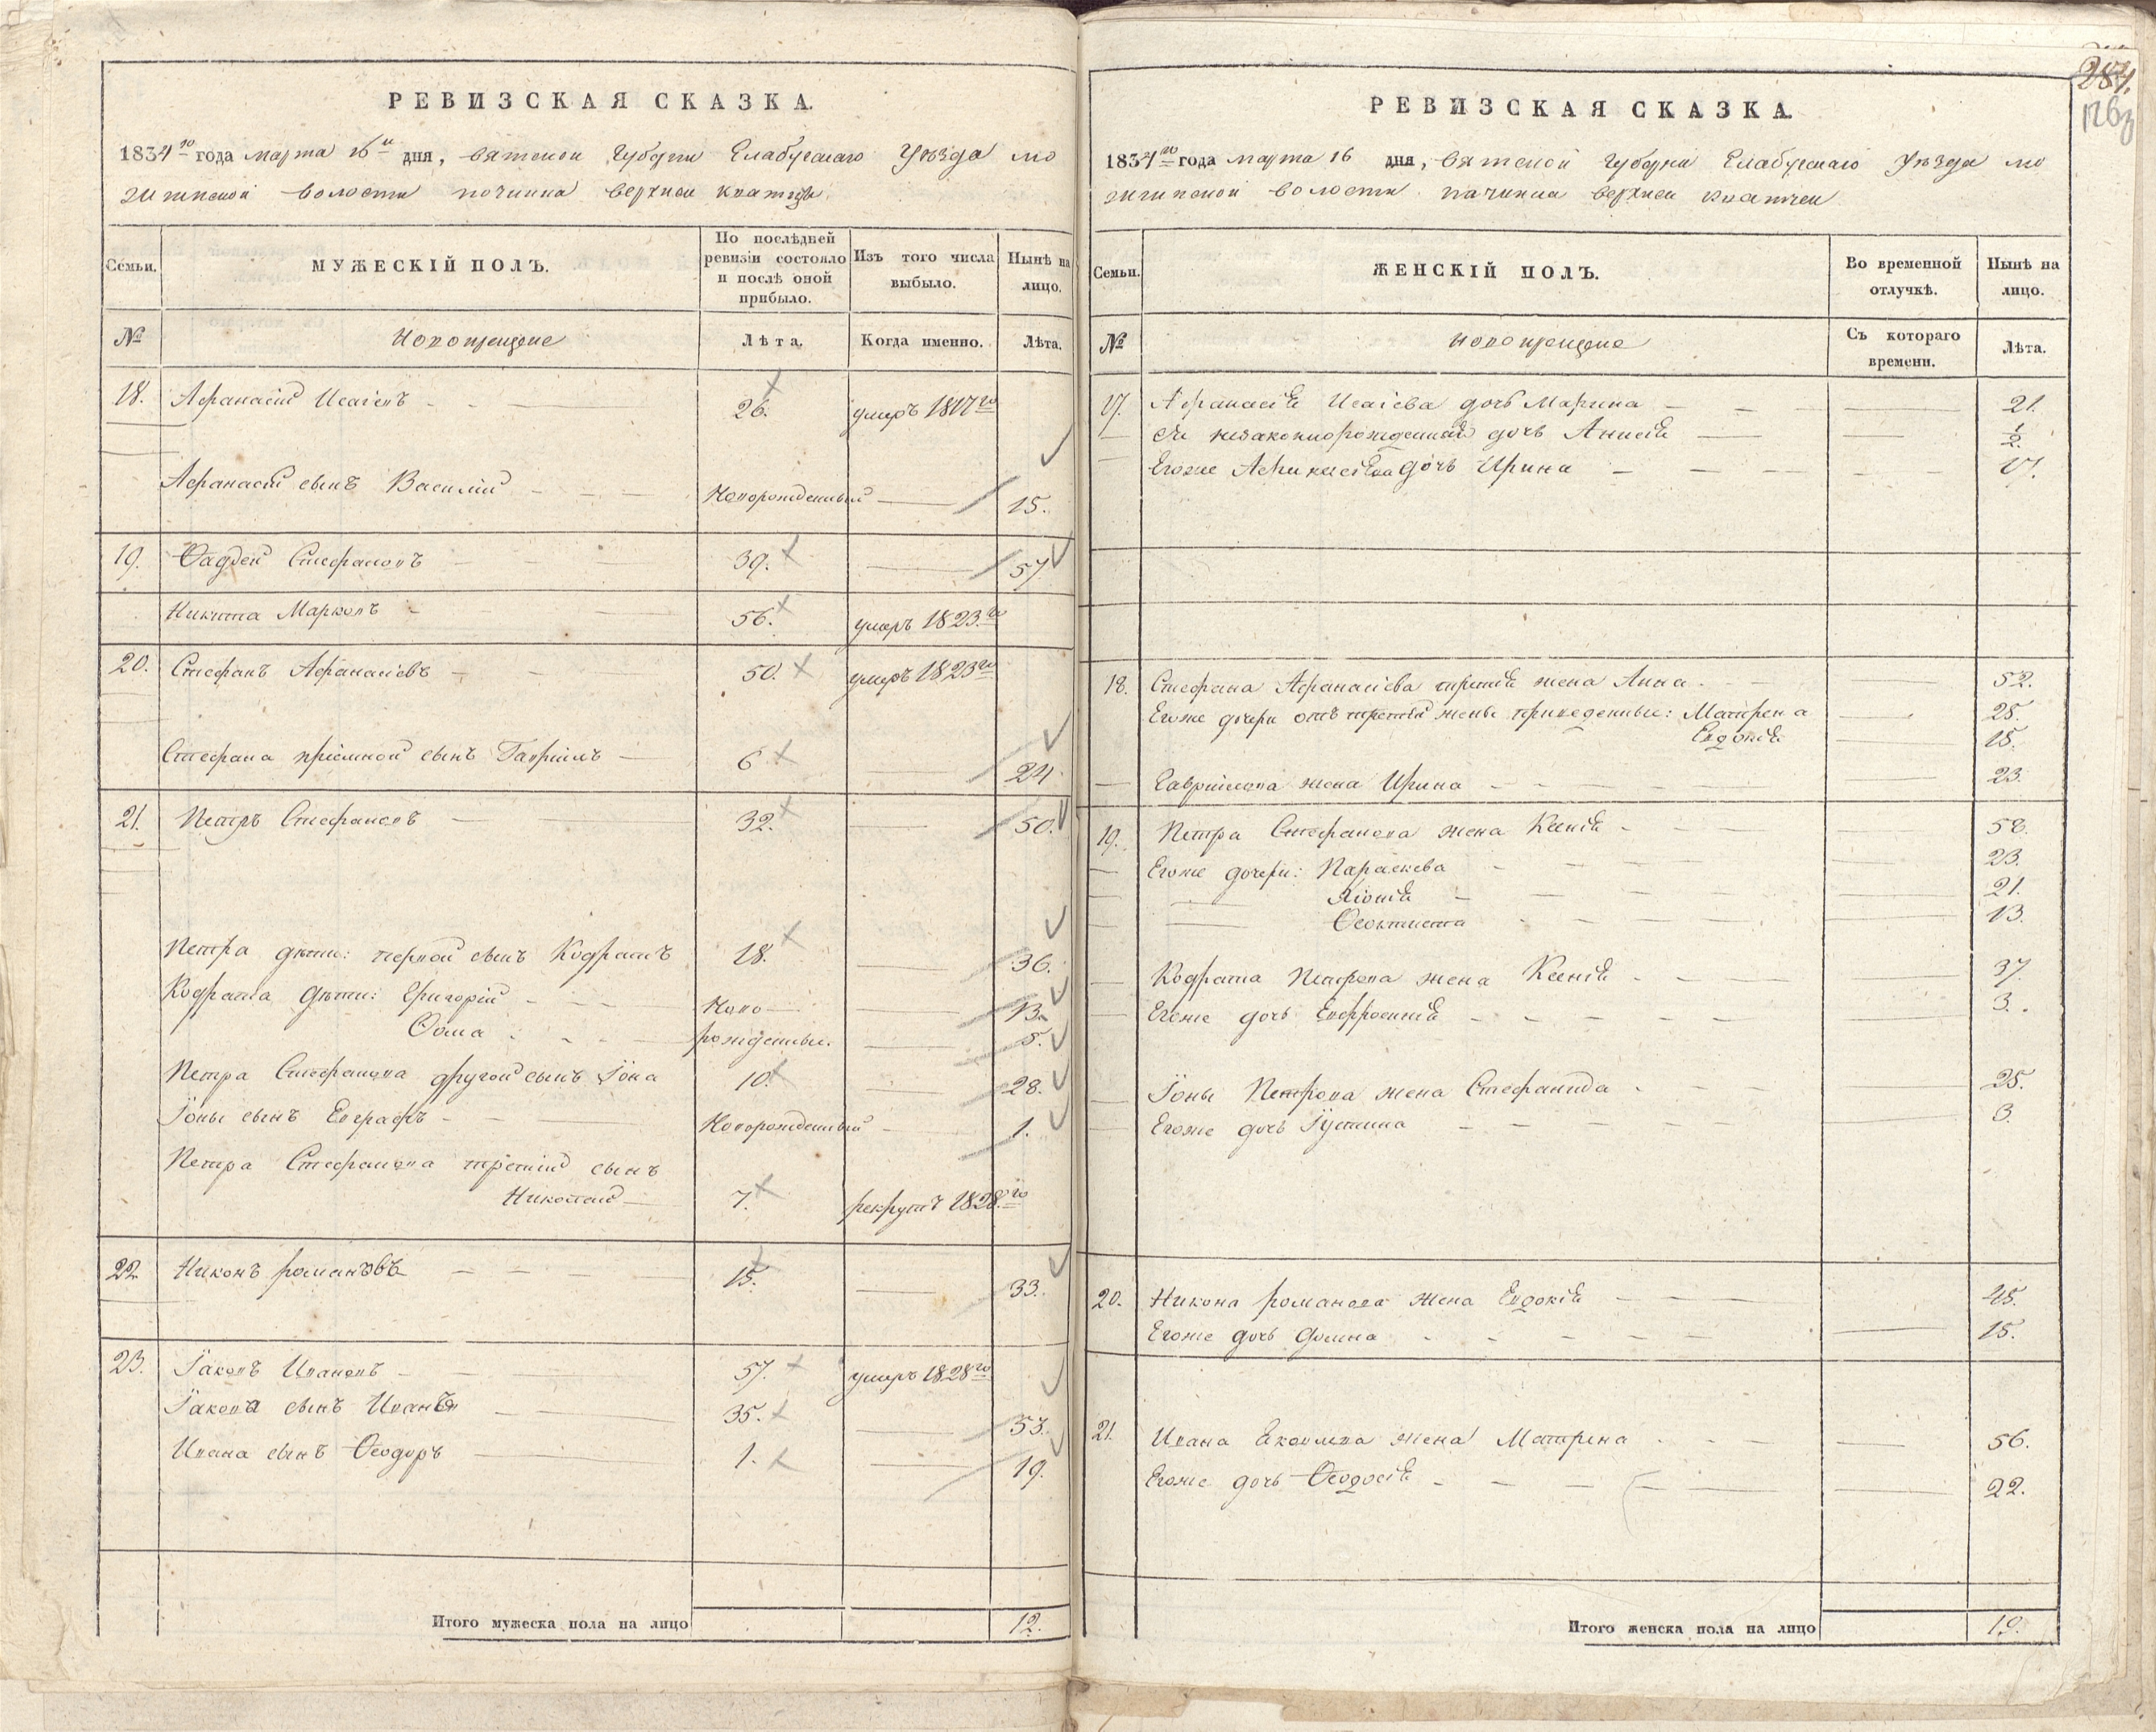 РЕВИЗСКАЯ СКАЗКА.
1834го года марта 16и дня, вятской Губерни Елабугскаго Уѣзда мо
жгинской волости починка верхней
Семьи.
МУЖЕСКІЙ ПОЛЪ.
По послѣдней ревизіи состояло и послѣ оной прибыло.
Изъ того числа выбыло.
Нынѣ на лицо.
№
Новокрещене
Лѣта.
Когда именно.
Лѣта.
18. Афанасій Исаіевъ 26. умеръ 1817го
Афанасій сынъ Василій Новорожденный 15.
19. Ѳадѣй Стефановъ 39. 57
Никита Марковъ 56. умеръ 1823.го
20. Стефанъ Афанасіевъ 50. умеръ 1823го
Стефана пріемной сынъ Гавріилъ 6 24
21. Петръ Стефановъ 32. 50.
Петра дѣти: первой сынъ Кодратъ 18. 36.
Кодрата дѣти: Григорій Ново 13.
Ѳома рожденные. 5.
Петра Стефанова другой сынъ Іона 10. 28.
Іоны сынъ Евграфъ Новорожденный 1.
Петра Стефанова третій сынъ
Николай 7. рекрутъ 1828.го
22. Никонъ романовъ 15. 33.
23. Іаковъ Ивановъ 57. умеръ 1828го
Іакова сынъ Иванъ 35. 53.
Ивана сынъ Ѳеодоръ 1. 19.
Итого мужеска пола на лицо 12.
РЕВИЗСКАЯ СКАЗКА.
1834го года марта 16 дня, вятской Губерни Елабугскаго Уѣзда мо
жгинской волости починка верхней
Семьи.
ЖЕНСКІЙ ПОЛЪ.
Во временной отлучкѣ.
Нынѣ на лицо.
№
новокрещене
Съ котораго времени.
Лѣта.
17. Афанасія Исаіева дочь Марина 21.
Ея незаконнорожденная дочь Анисія 1/2.
Егоже дочь Ирина 17.
18. Стефана Афанасіева третія жена Анна 52.
Егоже дочери отъ третей жены приведенные: Матрена 25.
Евдокія 15.
Гавріилова жена Ирина 23.
19. Петра Стефанова жена Ксенія 58.
Егоже дочери: Параскева 23.
21.
Ѳеоктиста 13.
Кодрата Петрова жена Ксенія 37.
Егоже дочь Евфросинія 3.
Іоны Петрова жена Стефанида 25.
Егоже дочь Іустина 3.
20. Никона романова жена Евдокія 45.
Егоже дочь Домна 15.
21. Ивана Яковлева жена Матрена 56.
Егоже дочь Ѳеодосія 22.
Итого женска пола на лицо 19.